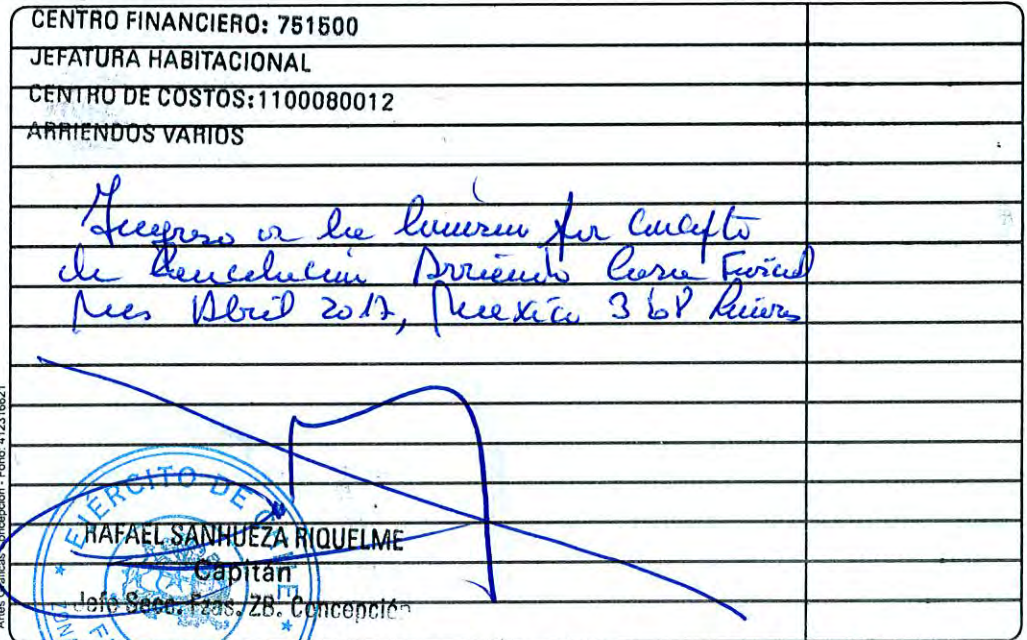 CENTRO FINANCIERO: 751500
JEFATURA HABITACIONAL
CENTRO DE COSTOS:1100080012
ARRIENDOS VARIOS
Ingreso por concepto
de Cancelación Arriendo Casa Fiscal
Mes Abril 2017, Mexico 368
EJÉRCITO DE
RAFAEL SANHUEZA RIQUELME
Capitán
Jefe Secc. Fzas. ZB. Concepción
Artes Gráficas Concepción - Fono: 412316621